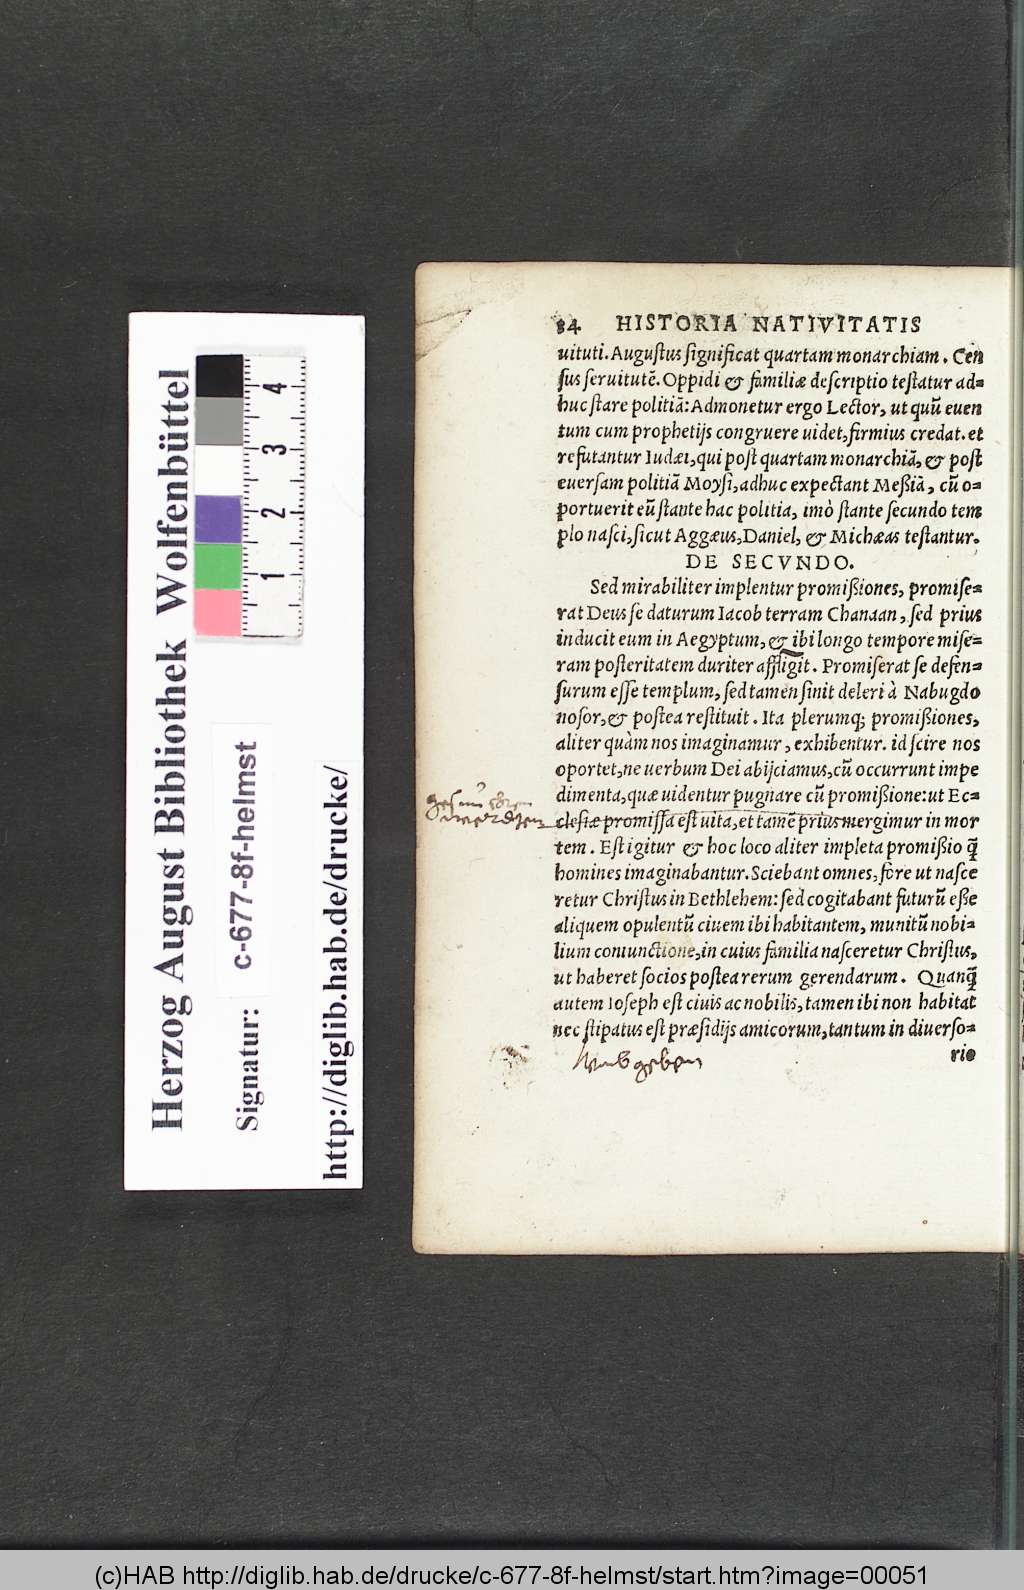 84 HISTORIA NATIVITATIS
uituti. Augustus significat quartam monarchiam. Cen
sus seruitutẽ. Oppidi & familiæ descriptio testatur ad=
huc stare politiã: Admonetur ergo Lector, ut quũ euen
tum cum prophetijs congruere uidet, firmius credat. et
refutantur Iudæi, qui post quartam monarchiã, & post
euersam politiã Moysi, adhuc expectant Meßiã, cũ o=
portuerit eũ stante hac politia, imò stante secundo tem
plo nasci, sicut Aggæus, Daniel, & Michæas testantur.
DE SECVNDO.
Sed mirabiliter implentur promißiones, promise=
rat Deus se daturum Iacob terram Chanaan, sed prius
inducit eum in Aegyptum, & ibi longo tempore mise=
ram posteritatem duriter affligit. Promiserat se defen=
surum esse templum, sed tamen sinit deleri à Nabugdo
nosor, & postea restituit. Ita plerumq; promißiones,
aliter quàm nos imaginamur, exhibentur. id scire nos
oportet, ne uerbum Dei abijciamus, cũ occurrunt impe
dimenta, quæ uidentur pugnare cũ promißione: ut Ec=
clesiæ promissa est uita, et tamẽ prius mergimur in mor
tem. Est igitur & hoc loco aliter impleta promißio q̃
homines imaginabantur. Sciebant omnes, fore ut nasce
retur Christus in Bethlehem: sed cogitabant futurũ eße
aliquem opulentũ ciuem ibi habitantem, munitũ nobi=
lium coniunctione, in cuius familia nasceretur Christus,
ut haberet socios postea rerum gerendarum. Quanq̃
autem Ioseph est ciuis ac nobilis, tamen ibi non habitat
nec stipatus est præsidijs amicorum, tantum in diuerso=
rio
Herzog August Bibliothek Wolfenbüttel
Signatur: c-677-8f-helmst
http://diglib.hab.de/drucke/
1 2 3 4
(c)HAB http://diglib.hab.de/drucke/c-677-8f-helmst/start.htm?image=00051